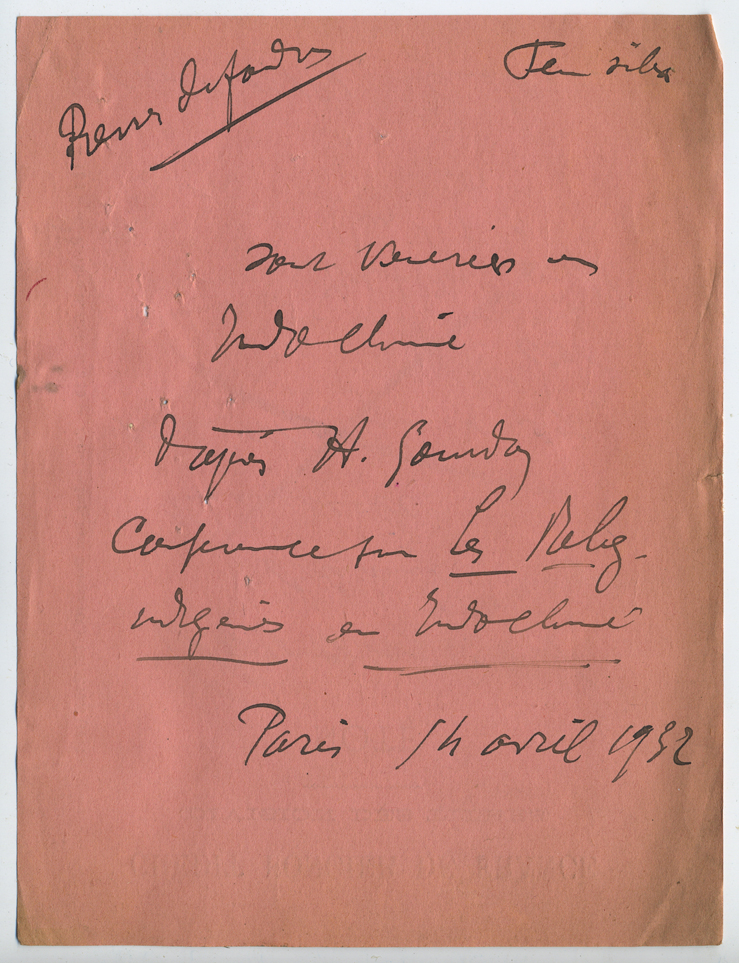 Pierres de foudre
Feu silex
sont vénérées en
Indochine
d'après H. Gourdon
Conférence sur Les Relig.
indigènes en Indochine
Paris 14 avril 1932